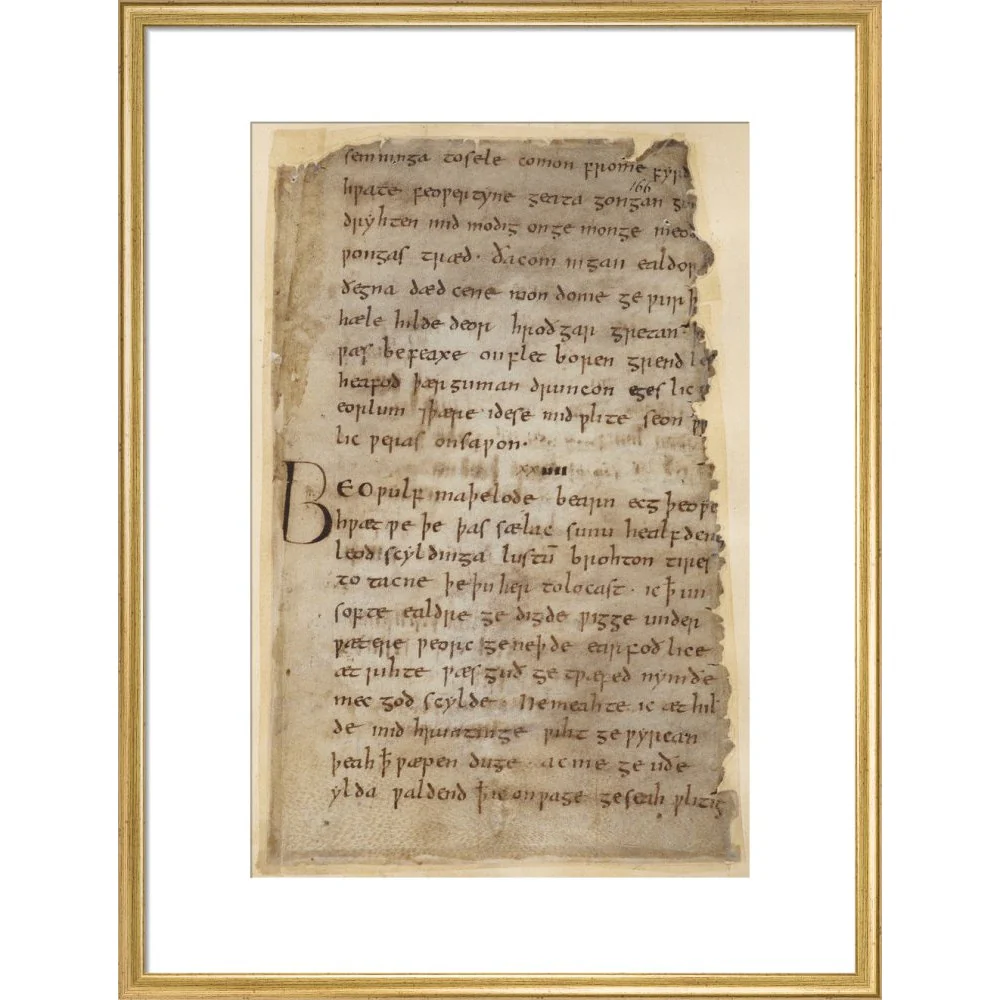 semninga tosele comon frome fyrd
166
hƿate feoƿertyne geata gongan
dryhten mid modig onge monge meo
ƿongas træd · ðacom ingan ealdor
ðegna dæd cene mon dome ge ƿurþ
hæle hilde deor hroðgar gretan ·
ƿæs be feaxe onflet boren grendle
heafod þærguman druncon eges lic
eorlum ⁊þære idese mid ƿlite seon
lic ƿeras onsaƿon ·
xxiiii
BEOƿulf maþelode bearn ecg þeoƿe
hƿæt ƿe þe þas sælac sunu healfden
leod scyldinga lustū brohton tires
to tacne þeþuher tolocast · ic ꝥ un
softe ealdre ge digde ƿigge under
ƿætere ƿeorc geneþde earfoð lice
æt rihte ƿæs guð ge tƿæfed nymðe
mec god scylde · Nemeahte ic æt hil
de mid hruntinge ƿiht ge ƿyrcan
þeah ꝥ ƿæpen duge · ac me ge uðe
ylda ƿaldend ꝥic onƿage geseah ƿlitig